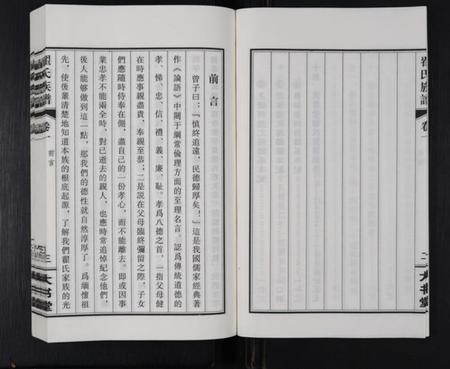 翟氏族譜
卷一
二
大书堂
前言
曾子曰：「慎終追遠，民德歸厚矣！」這是我國儒家經典著
作《論語》中關于綱常倫理方面的至理名言。認爲傳統道德的
孝、悌、忠、信、禮、義、廉、耻。孝爲八德之首，一指父母健
在時應事親盡責，奉親至恭；二是說在父母臨終彌留之際，子女
們應隨時侍奉在側，盡自己的一份孝心，而不能離去。即或因事
業忠孝不能兩全時，對已逝去的親人，也應時常追悼紀念他們，
後人能够做到這一點，那我們的德性就自然淳厚了。爲緬懷祖
先，使後輩清楚地知道本族的根底起源，了解我們翟氏家族的光
翟氏族譜
卷一
前言
大书堂